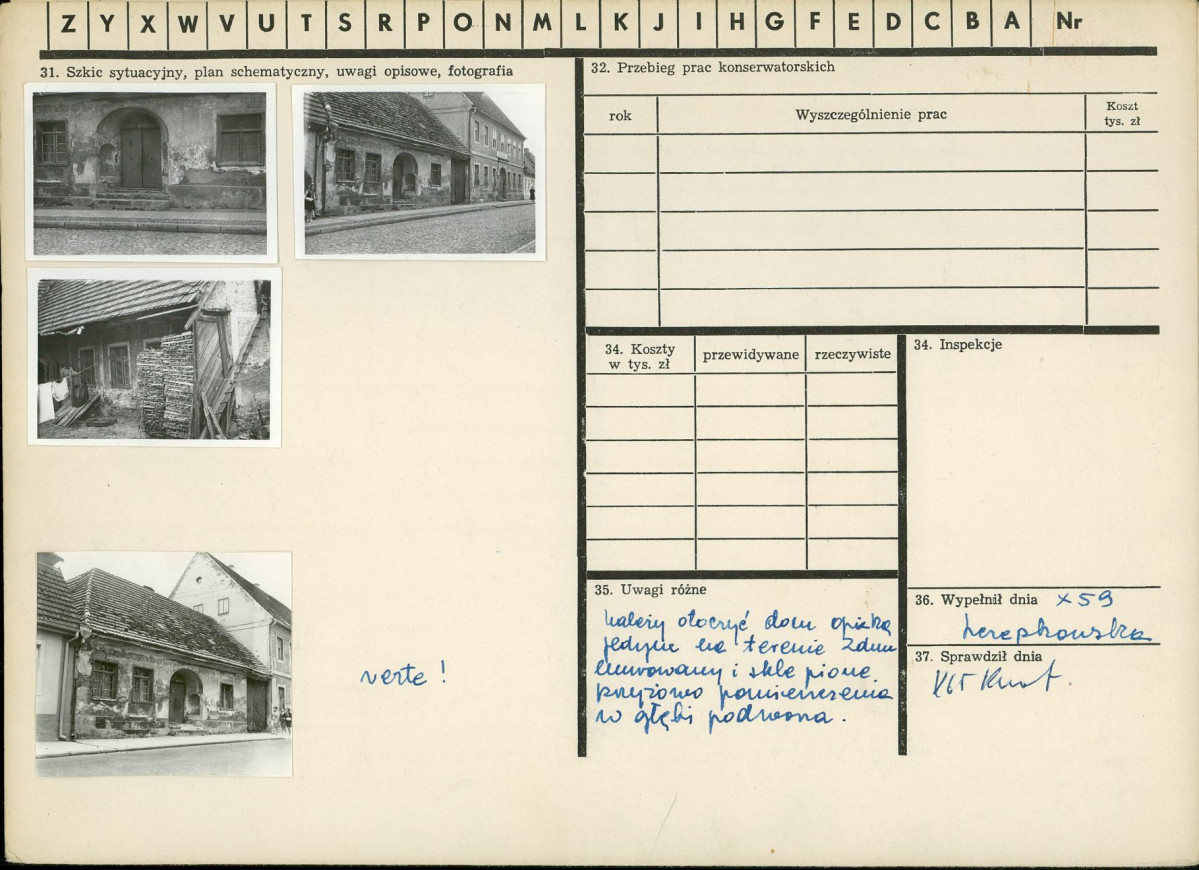 Z Y X W V U T S R P O N M L K J I H G F E D C B A Nr
31. Szkic sytuacyjny, plan schematyczny, uwagi opisowe, fotografia
verte!
32. Przebieg prac konserwatorskich
rok Wyszczególnienie prac Koszt
tys. zł
34. Koszty
w tys. zł
przewidywane rzeczywiste
34. Inspekcje
35. Uwagi różne
należy otoczyć dom opieką
jedyny na terenie
murowany i sklepione
krzyżowo pomieszczenia
w głębi podwórza.
36. Wypełnił dnia X 59
37. Sprawdził dnia